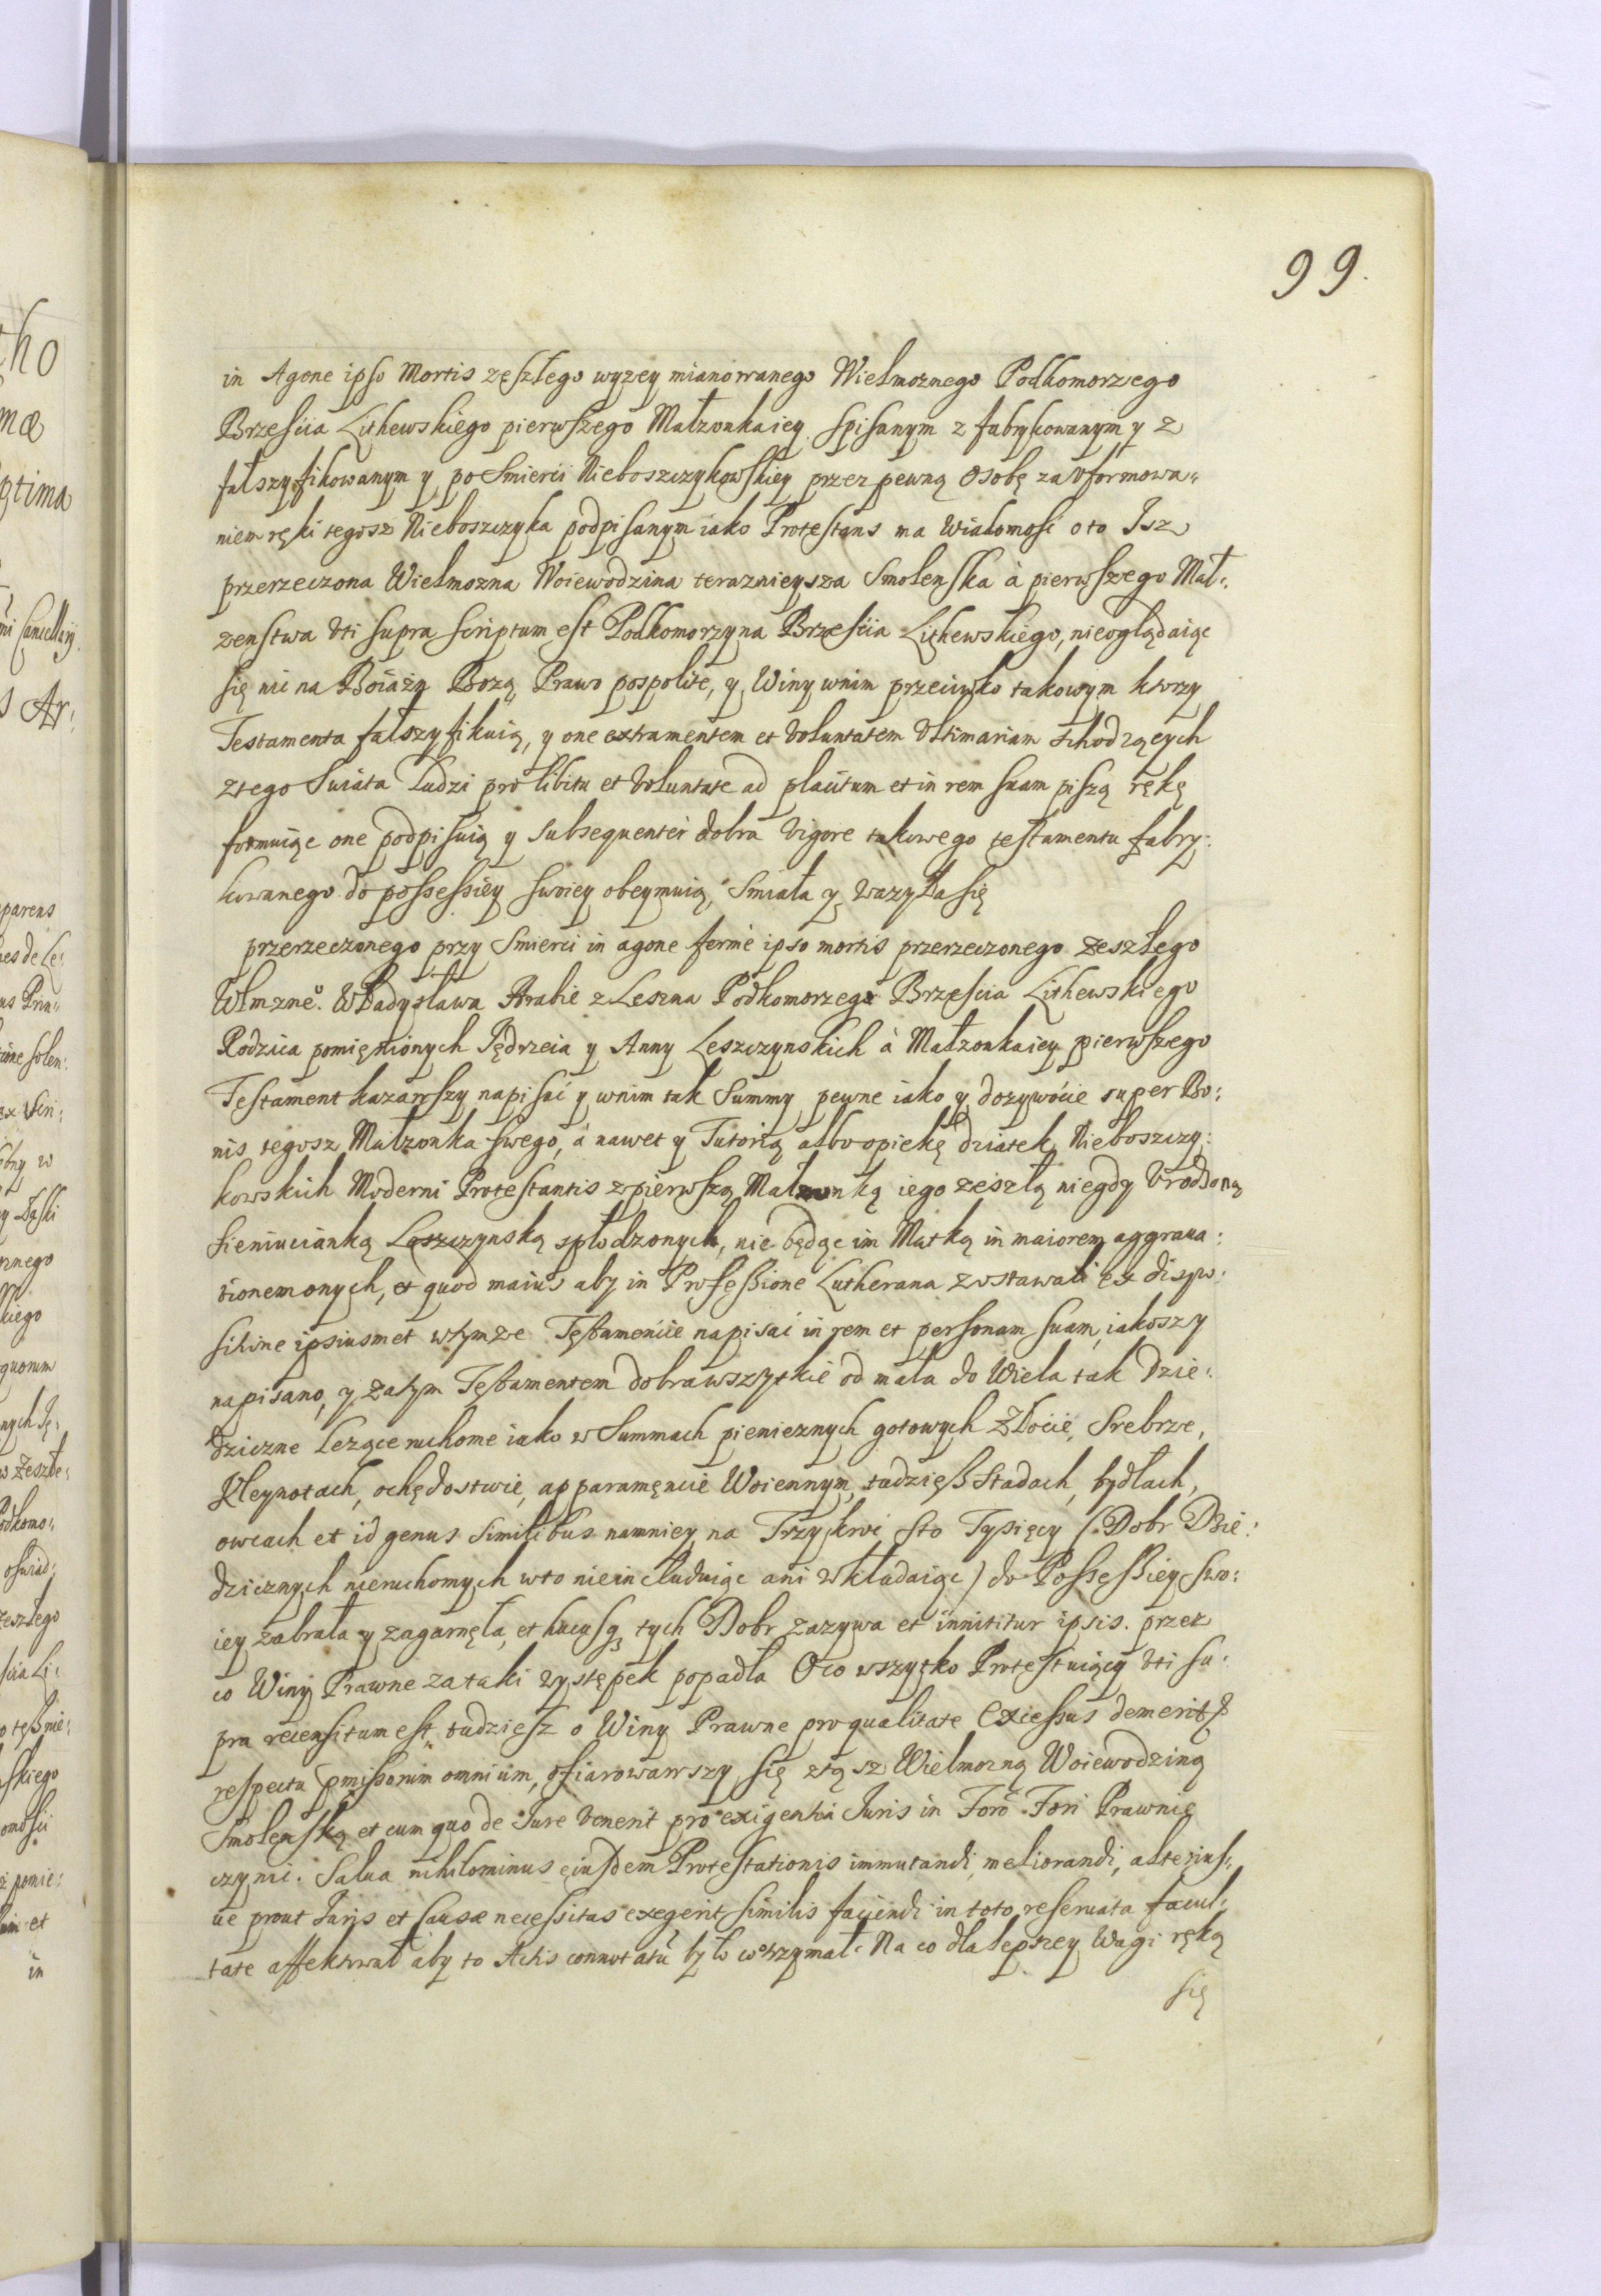 99.
in Agone ipso Mortis zeszłego wyzey mianowanego Wielmoznego Podkomorzego
Brzescia Lithewskiego pierwszego Małzonkaiey spisanym z fabrykowanym y z
fałszyfikowanym y po Smierci Nieboszczykowskiey przez pewną Osobę za Vformowa„
niem ręki tegosz Nieboszczyka podpisanym iako Protestans ma Wiadomosc o to Isz
przerzeczona Wielmozna Woiewodzina teraznieysza Smolenska à pierwszego Mał:
zenstwa Vti supra scriptum est Podkomorzyna Brzescia Lithewskiego, nieoglądaiąc
się nic na Boiazn Bozą Prawo pospolite, y Winy wnim przeciwko takowym ktorzy
Testamenta fałszyfikuią, y one extramentem et Voluntatem Vltimariam schodzących
ztego Swiata Ludzi pro libitu et Voluntate ad placitum et in rem suam piszą rękę
formuiąc one podpisuią y subsequenter dobra Vigore takowego testamentu fabry:
kowanego do possessiey swoiey obeymuią, Smiała y wazyła się
przerzeczonego przy Smierci in agone fermè ipso mortis przerzeczonego zeszłego
Wlmzne̊. Władysława Hrabie z Leszna Podkomorzego Brzescia Lithewskiego
Rodzica pomięnionych Jędrzeia y Anny Leszczynskich à Małzonkaiey pierwszego
Testament kazawszy napisać y wnim tak Summy pewne iako y dozywocie super Bo:
nis tegosz Małzonka swego, a nawet y Tutorią albo opiekę dziatek Nieboszczy:
kowskich Moderni Protestantis zpierwszą Małzonką iego zeszłą niegdy Vrodzoną
Sieniucianką Leszczynską spłodzonych, nie będąc im Matką in maiorem aggraua:
tionem onych, et quod maius aby in Professione Lutherana zostawali ex dispo:
sitione ipsiusmet wtymze Testamencie napisac in rem et personam suam, iakoszy
napisano, y zatym Testamentem dobrawszytkie od mała do Wiela tak Dzie:
dziczne Lezące ruchome iako w Summach pienieznych gotowych Złocie, Srebrze,
Kleynotach, ochędostwie, apparamęncie Woiennym, tudziesz Stadach, bydłach,
owcach et id genus similibus namniey na Trzykroc Sto Tysięcy (Dobr Dzie:
dzicznych nieruchomych wto nieincluduiąc ani wkładaiąc) do Possessiey swo:
iey zabrała y zagarnęła, et hucusq3 tych Dobr zazywa et innititur ipsis. przez
co Winy Prawne za taki występek popadła O co wszytko Protestuiący Vti su:
pra recensitum est, tudziesz o Winy Prawne pro qualitate Excessus demeritz
respectu pmissorum omnium, ofiarowawszy się ztąsz Wielmozną Woiewodziną
Smolenską et cum quo de Iure Venerit pro exigentia Iuris in Foro Fori Prawnie
czynic. Salua nihilominus eiusdem Protestationis immutandi, meliorandi, alterius„
ue prout Iuris et Causæ necessitas exegerit similis faciendi in toto reseruata facul:
tate affektował aby to Actis connotatū było otrzymał. Na co dla lepszey Wagi ręką
się